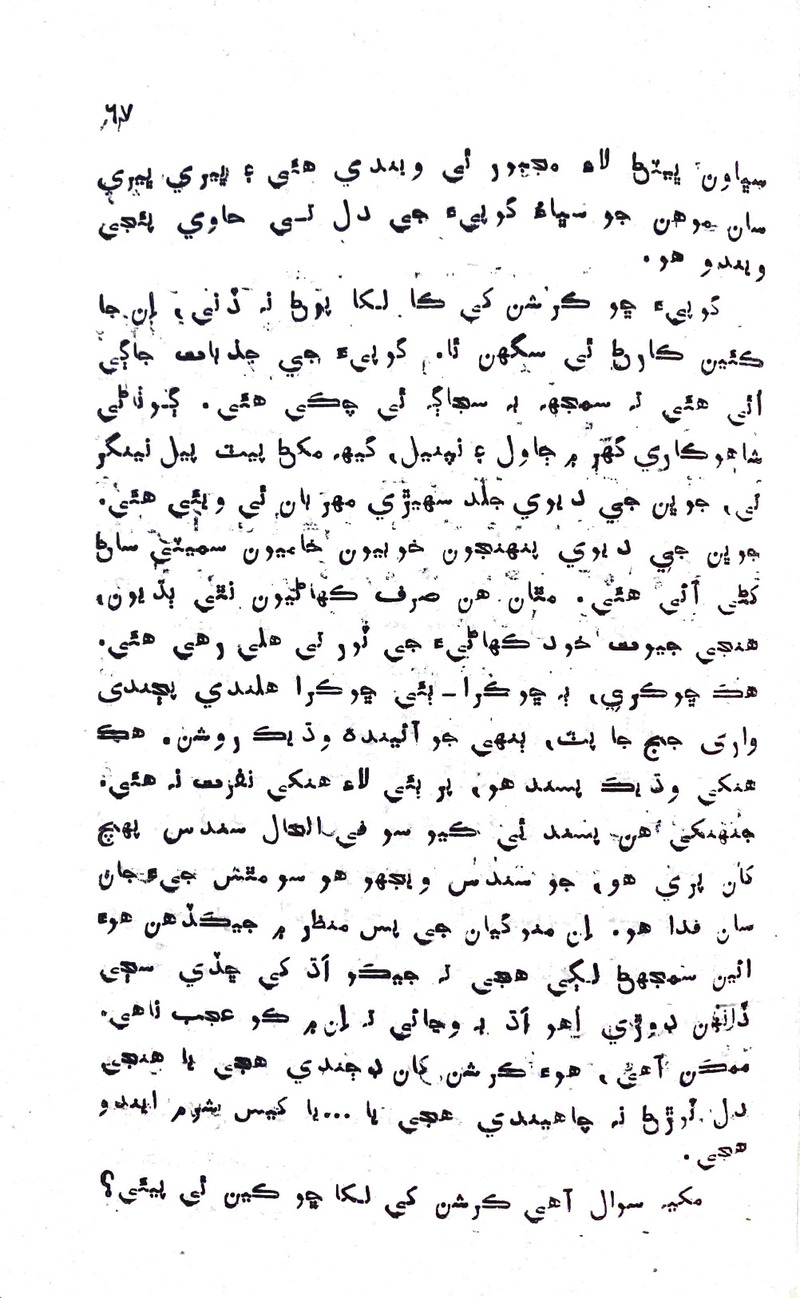 ٦٧
سڀاون ڀيٽڻ لاءِ مجبور ٿي ويندي هئي ۽ ڀيري ڀيري
سان موهن جو سڀاءُ گوپيءَ جي دل تي حاوي پئجي
ويندو هو.
گوپيءَ ڇو ڪرشن کي ڪا لڪا پوڻ نہ ڏني، اِن جا
ڪئين ڪارڻ ٿي سگهن ٿا. گوپيءَ جي جذبات جاڳي
اُٿي هئي تہ سمجهہ بہ سجاڳ ٿي چڪي هئي.
شاهوڪاري گهر ۾ ڄاول ۽ نپنيل، گيهہ مکڻ پيٽ پيل نينگر
تي، جوڀن جي ديوي جلد سهيڙي مهربان ٿي ويئي هئي.
جوڀن جي ديوي پنهنجون خوبيون خاميون سميٽي ساڻ
کڻي آئي هئي. مٿان هن صرف ڪهاڻيون نٿي ٻڌيون،
هنجي جيوت خود ڪهاڻيءَ جي ٽور تي هلي رهي هئي.
هڪ ڇوڪري، ٻہ ڇوڪرا - ٻئي ڇوڪرا هلندي پڄندي
واري جيج جا پٽ، ٻنهي جو آئيندہ وڌيڪ روشن. هڪ
هنکي وڌيڪ پسند هو، پر ٻئي لاءِ هنکي نفرت نہ هئي.
جنهنکي هن پسند ٿي ڪيو سو في الحال سندس پهچ
کان پري هو، جو سندس ويجهو هو سو مٿس جيءَ جان
سان فدا هو. اِن مدو گيان جي پس منظر ۾ جيڪڏهن هوءَ
ائين سمجهڻ لڳي هجي تہ جيڪو اَڌ کي ڇڏي سڄي
ڏانهن ڊوڙي اهو اَڌ بہ وڃائي تہ اِن ۾ ڪو عجب ناهي.
ممڪن آهي، هوءَ ڪرشن کان ڊڄندي هجي يا هنجي
دل ٽوڙڻ نہ چاهيندي هجي يا ...يا کيس شرم ايندو
هجي.
مکيہ سوال آهي ڪرشن کي لڪا ڇو ڪين ٿي پيئي؟